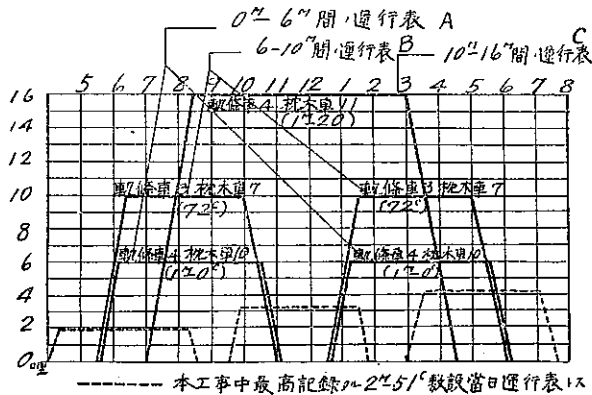 0ᴹ–6ᴹ間,運行表 A
6-10ᴹ間,運行表 B
10ᴹ-16ᴹ間,運行表 C
5 6 7 8 9 10 11 12 1 2 3 4 5 6 7 8
16
14
12
10
8
6
4
2
0哩
軌條車4 枕木車11
(1ᴹ20)
軌條車3 枕木車7
(72ᶜ)
軌條車3 枕木車7
(72ᶜ)
軌條車4 枕木車10
(1ᴹ0ᶜ)
軌條車4 枕木車10
(1ᴹ0ᶜ)
本工事中最高記録 2ᴹ51ᶜ敷設當日運行表トス